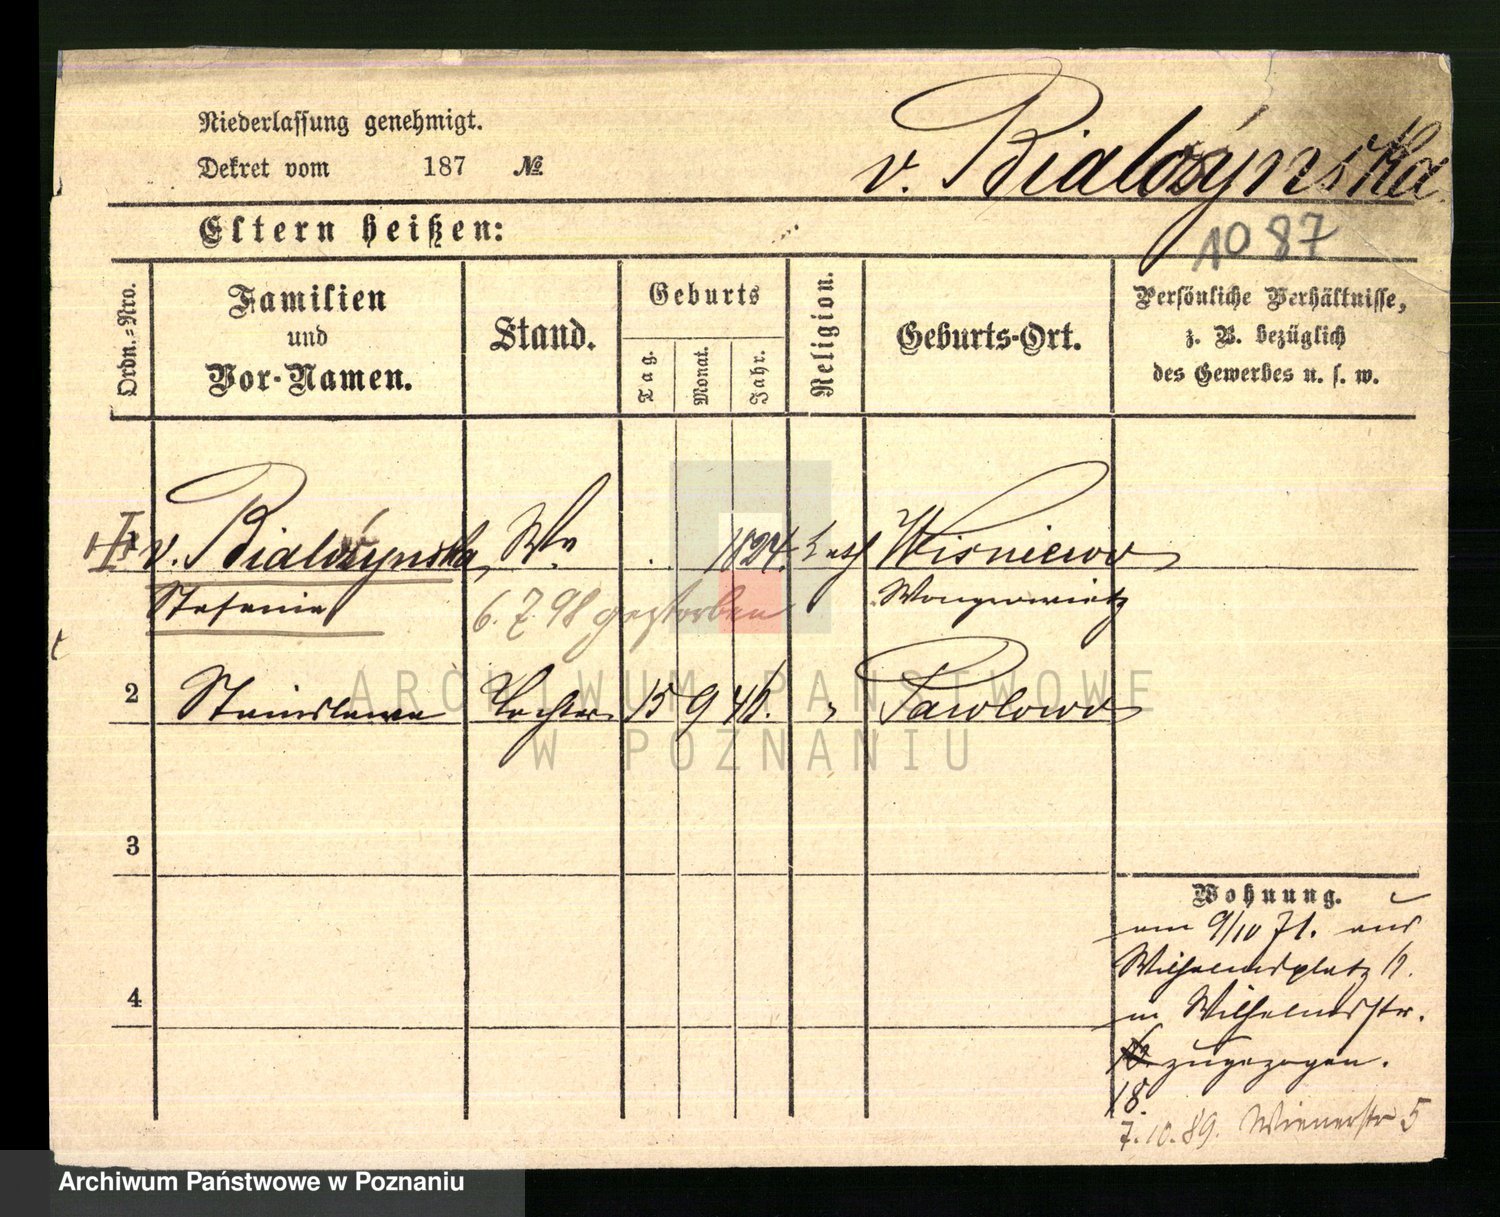 Niederlassung genehmigt.
Dekret vom 187 №
v. Bialożynska
Eltern heißen:
1087
Ordn.-Nro.
Familien
und
Vor-Namen.
Stand.
Geburts
Tag.
Monat.
Jahr.
Religion.
Geburts-Ort.
Persönliche Verhältnisse,
z. B. bezüglich
des Gewerbes u. s. w.
v. Bialożynska Ww 1824. kath Wisniewo
Stefania
Wongrowietz
6. 7. 98 gestorben
2 Stanislawa Tochter 15 9 46. " Pawlowo
3
4
Wohnung.
am 9/10 71. aus
Wilhelmsplatz
in Wilhelmsstr.
zugezogen.
18.
7.10.89. Wienerstr 5
ARCHIWUM PAŃSTWOWE
W POZNANIU
Archiwum Państwowe w Poznaniu